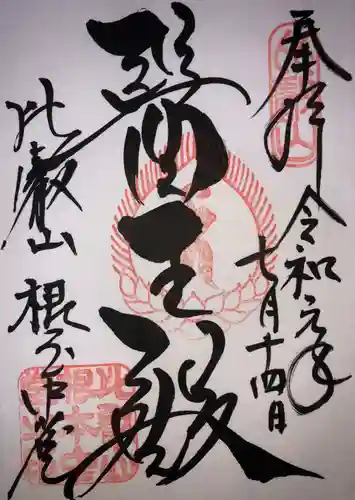 奉拝
令和元年
七月十四日
醫王殿
比叡山
根本中堂